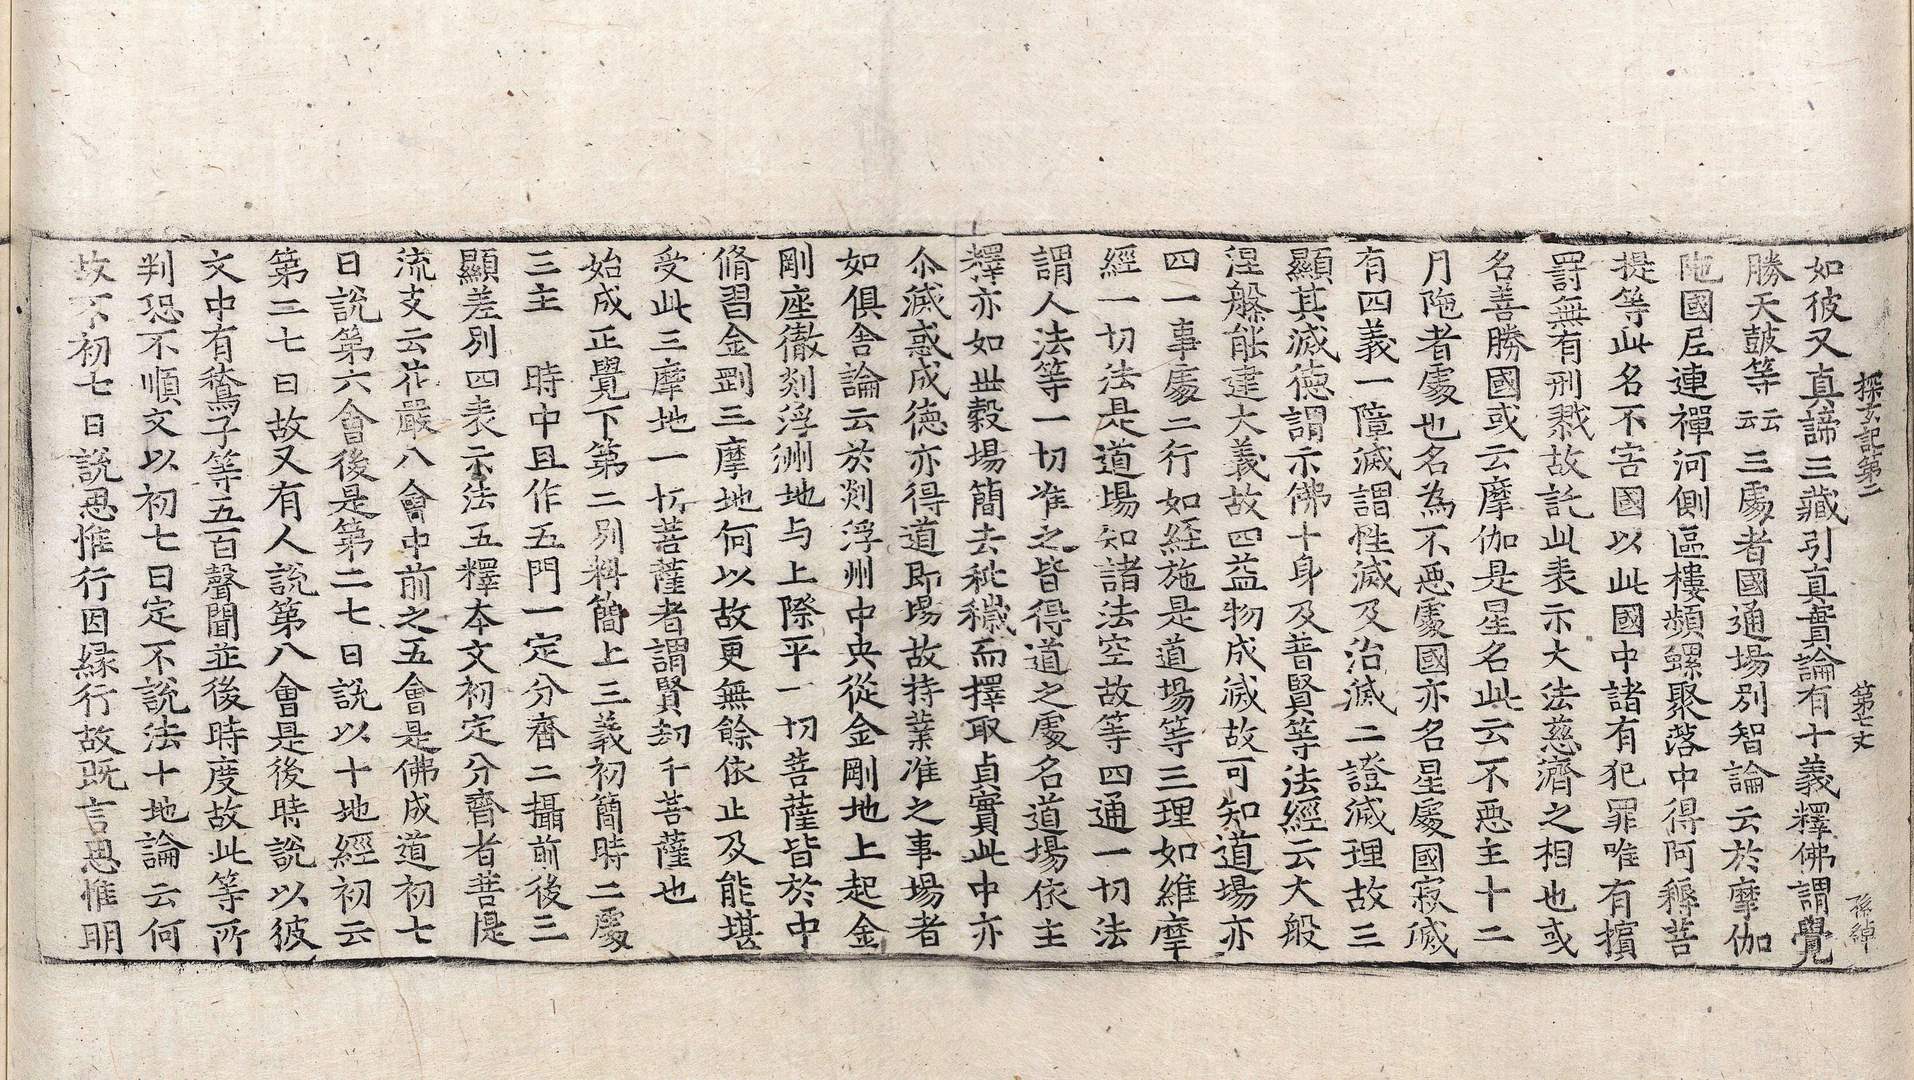 探玄記第二 第七丈 孫綽
如彼又真諦三藏引真實論有十義釋佛謂覺
勝天鼓等云云三處者國通場別智論云於摩伽
陁國尼連禪河側區樓頻螺聚落中得阿耨菩
提等此名不害國以此國中諸有犯罪唯有擯
罸無有刑戮故託此表示大法慈濟之相也或
名善勝國或云摩伽是星名此云不惡主十二
月陁者處也名為不惡處國亦名星處國寂滅
有四義一障滅謂性滅及治滅二證滅理故三
顯其滅徳謂示佛十身及普賢等法經云大般
涅槃能建大義故四益物成滅故可知道場亦
四一事處二行如経施是道場等三理如維摩
經一切法是道場知諸法空故等四通一切法
謂人法等一切准之皆得道之處名道場依主
釋亦如世穀場簡去秕穢而擇取貞實此中亦
尒滅惑成德亦得道即場故持業准之事場者
如俱舍論云於剡浮州中央從金剛地上起金
剛座徹剡浮洲地与上際平一切菩薩皆於中
脩習金剄三摩地何以故更無餘依止及能堪
受此三摩地一切菩薩者謂賢刼千菩薩也
始成正覺下第二別料簡上三義初簡時二處
三主 時中且作五門一定分齊二攝前後三
顯差別四表示法五釋夲文初定分齊者菩提
流支云花嚴八會中前之五會是佛成道初七
日說第六會後是第二七日說以十地經初云
第二七日故又有人說第八會是後時說以彼
文中有鶖子等五百聲聞並後時度故此等所
判恐不順文以初七日定不說法十地論云何
故不初七日說思惟行因縁行故既言思惟明